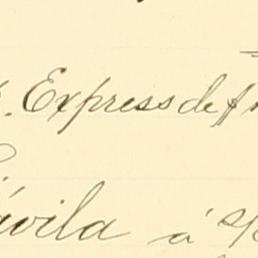 Express de
ávila á s/